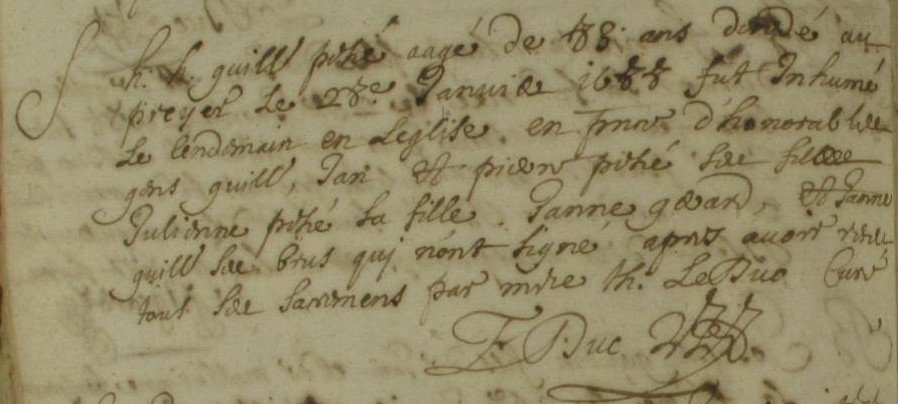 h. h. guill pithé aagé de 78 ans decedé au
preyer le 27e Januiee 1677 fut Inhumé
le lendemain en Leglise en pnce d'honorables
gens guill, Jan et pierre pithé ses filees
Julienne pithé sa fille. Janne geard, et Janne
guill ses brus qui n'ont signé apres auoir receu
tous ses sacremens par mire th. LeDuc Curé
Duc